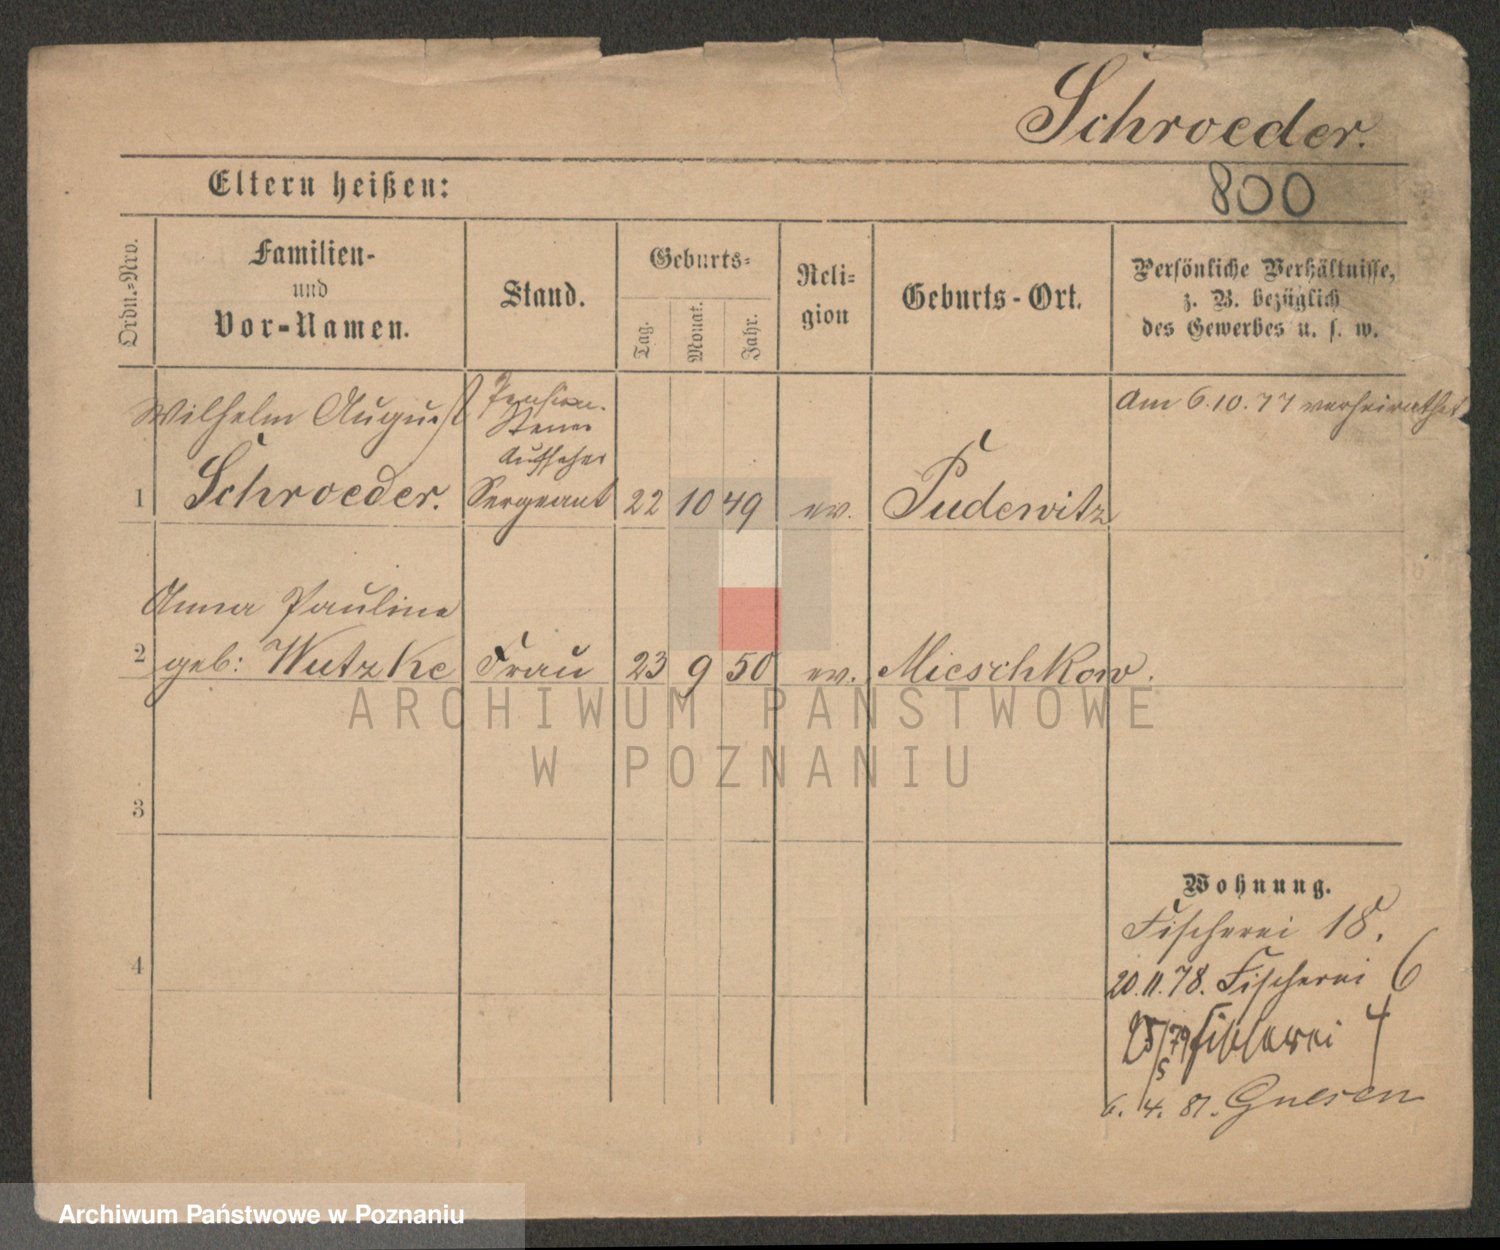 Schroeder.
800
Eltern heißen:
Ordn.-Nro.
Familien-
und
Vor-Namen.
Stand.
Geburts-
Tag.
Monat.
Jahr.
Reli-
gion
Geburts-Ort.
Persönliche Verhältnisse,
z. B. bezüglich
des Gewerbes u. s. w.
Wilhelm August
Pension.
Steuer
Aufseher
Am 6.10.77 verheirathet
1 Schroeder. Sergeant 22 10 49 ev. Pudewitz
Anna Pauline
2 geb: Wutzke Frau 23 9 50 ev. Mieschkow.
ARCHIWUM PAŃSTWOWE
W POZNANIU
3
4
Wohnung.
Fischerei 18.
20.11.78. Fischerei 6
25/5 79 Fischerei 4
6. 4. 81. Gnesen
Archiwum Państwowe w Poznaniu